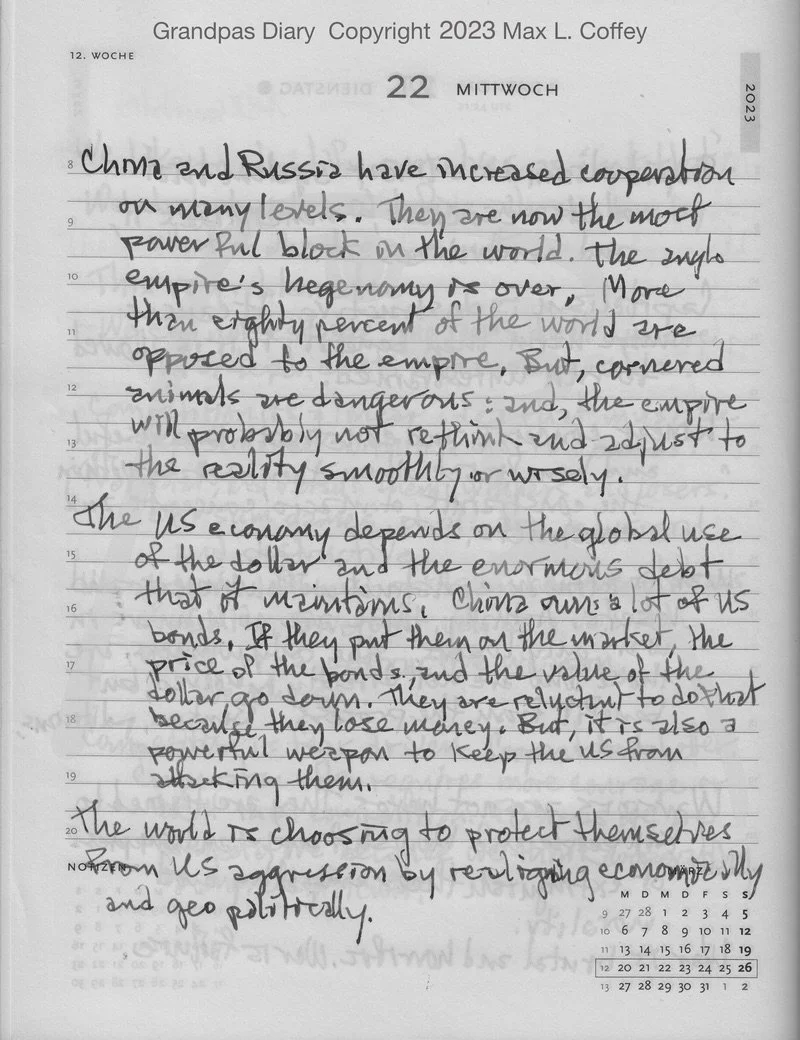 Grandpas Diary Copyright 2023 Max L. Coffey
12. WOCHE
22 MITTWOCH
2023
8 China and Russia have increased cooperation
on many levels. They are now the most
9 powerful block in the world. The anglo
10 empire's hegenomy is over, More
than eighty percent of the world are
11 opposed to the empire. But, cornered
12 animals are dangerous; and, the empire
will probably not rethink and adjust to
13 the reality smoothly or wisely.
14 The US economy depends on the global use
15 of the dollar and the enormous debt
that it maintains. China owns a lot of US
16 bonds. If they put them on the market, the
17 price of the bonds, and the value of the
dollar, go down. They are reluctant to do that
18 because they lose money. But, it is also a
powerful weapon to keep the US from
19 attacking them.
20 The world is choosing to protect themselves
NOTIZEN from US aggression by realigning economically
and geo politically.
MÄRZ
M D M D F S S
9 27 28 1 2 3 4 5
10 6 7 8 9 10 11 12
11 13 14 15 16 17 18 19
12 20 21 22 23 24 25 26
13 27 28 29 30 31 1 2